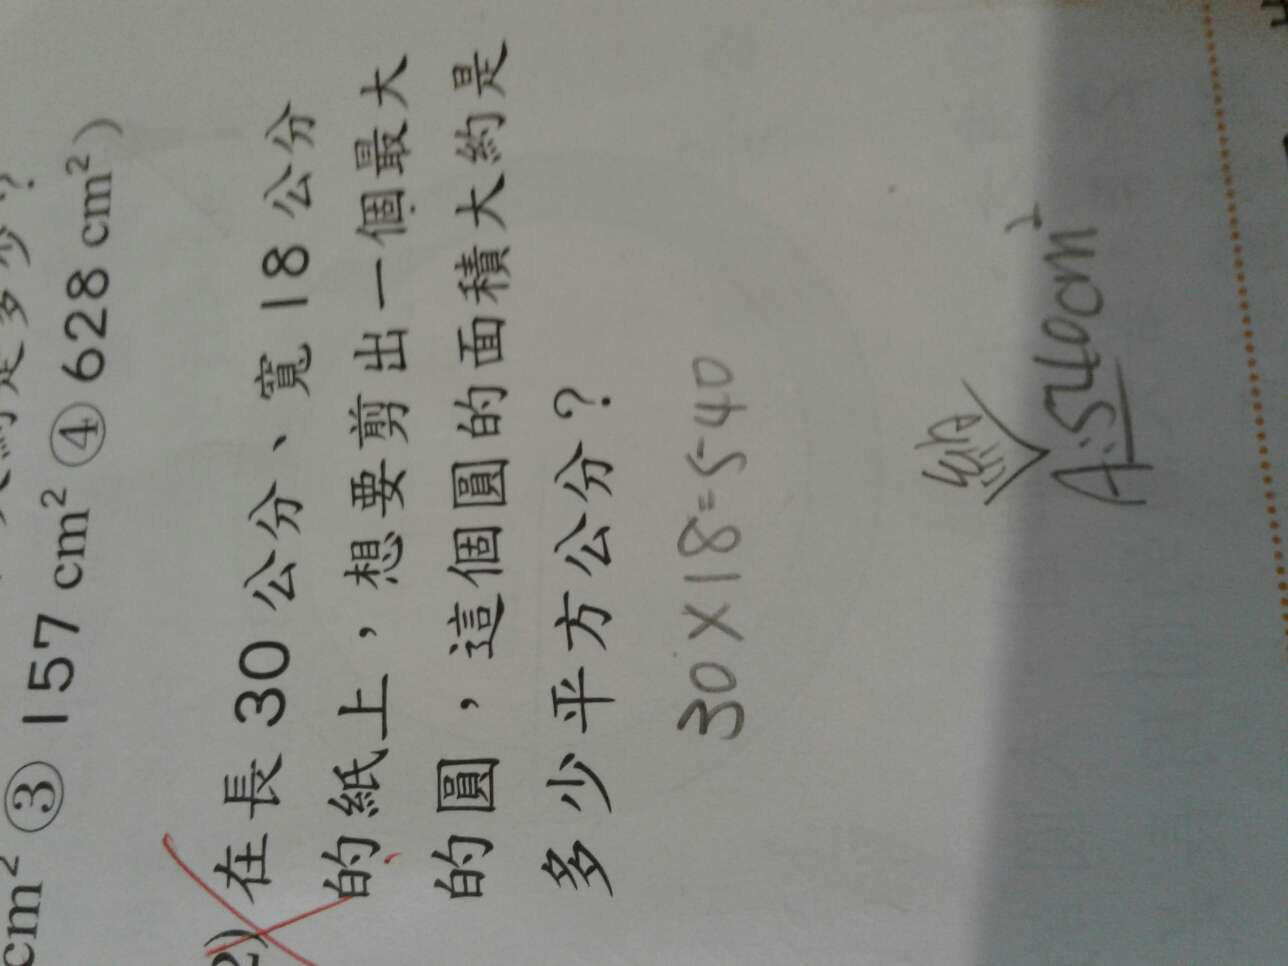 cm² ③ 157 cm² ④ 628 cm²)
2) 在長 30 公分、寬 18 公分
的紙上，想要剪出一個最大
的圓，這個圓的面積大約是
多少平方公分？
30×18=540
A:540cm²